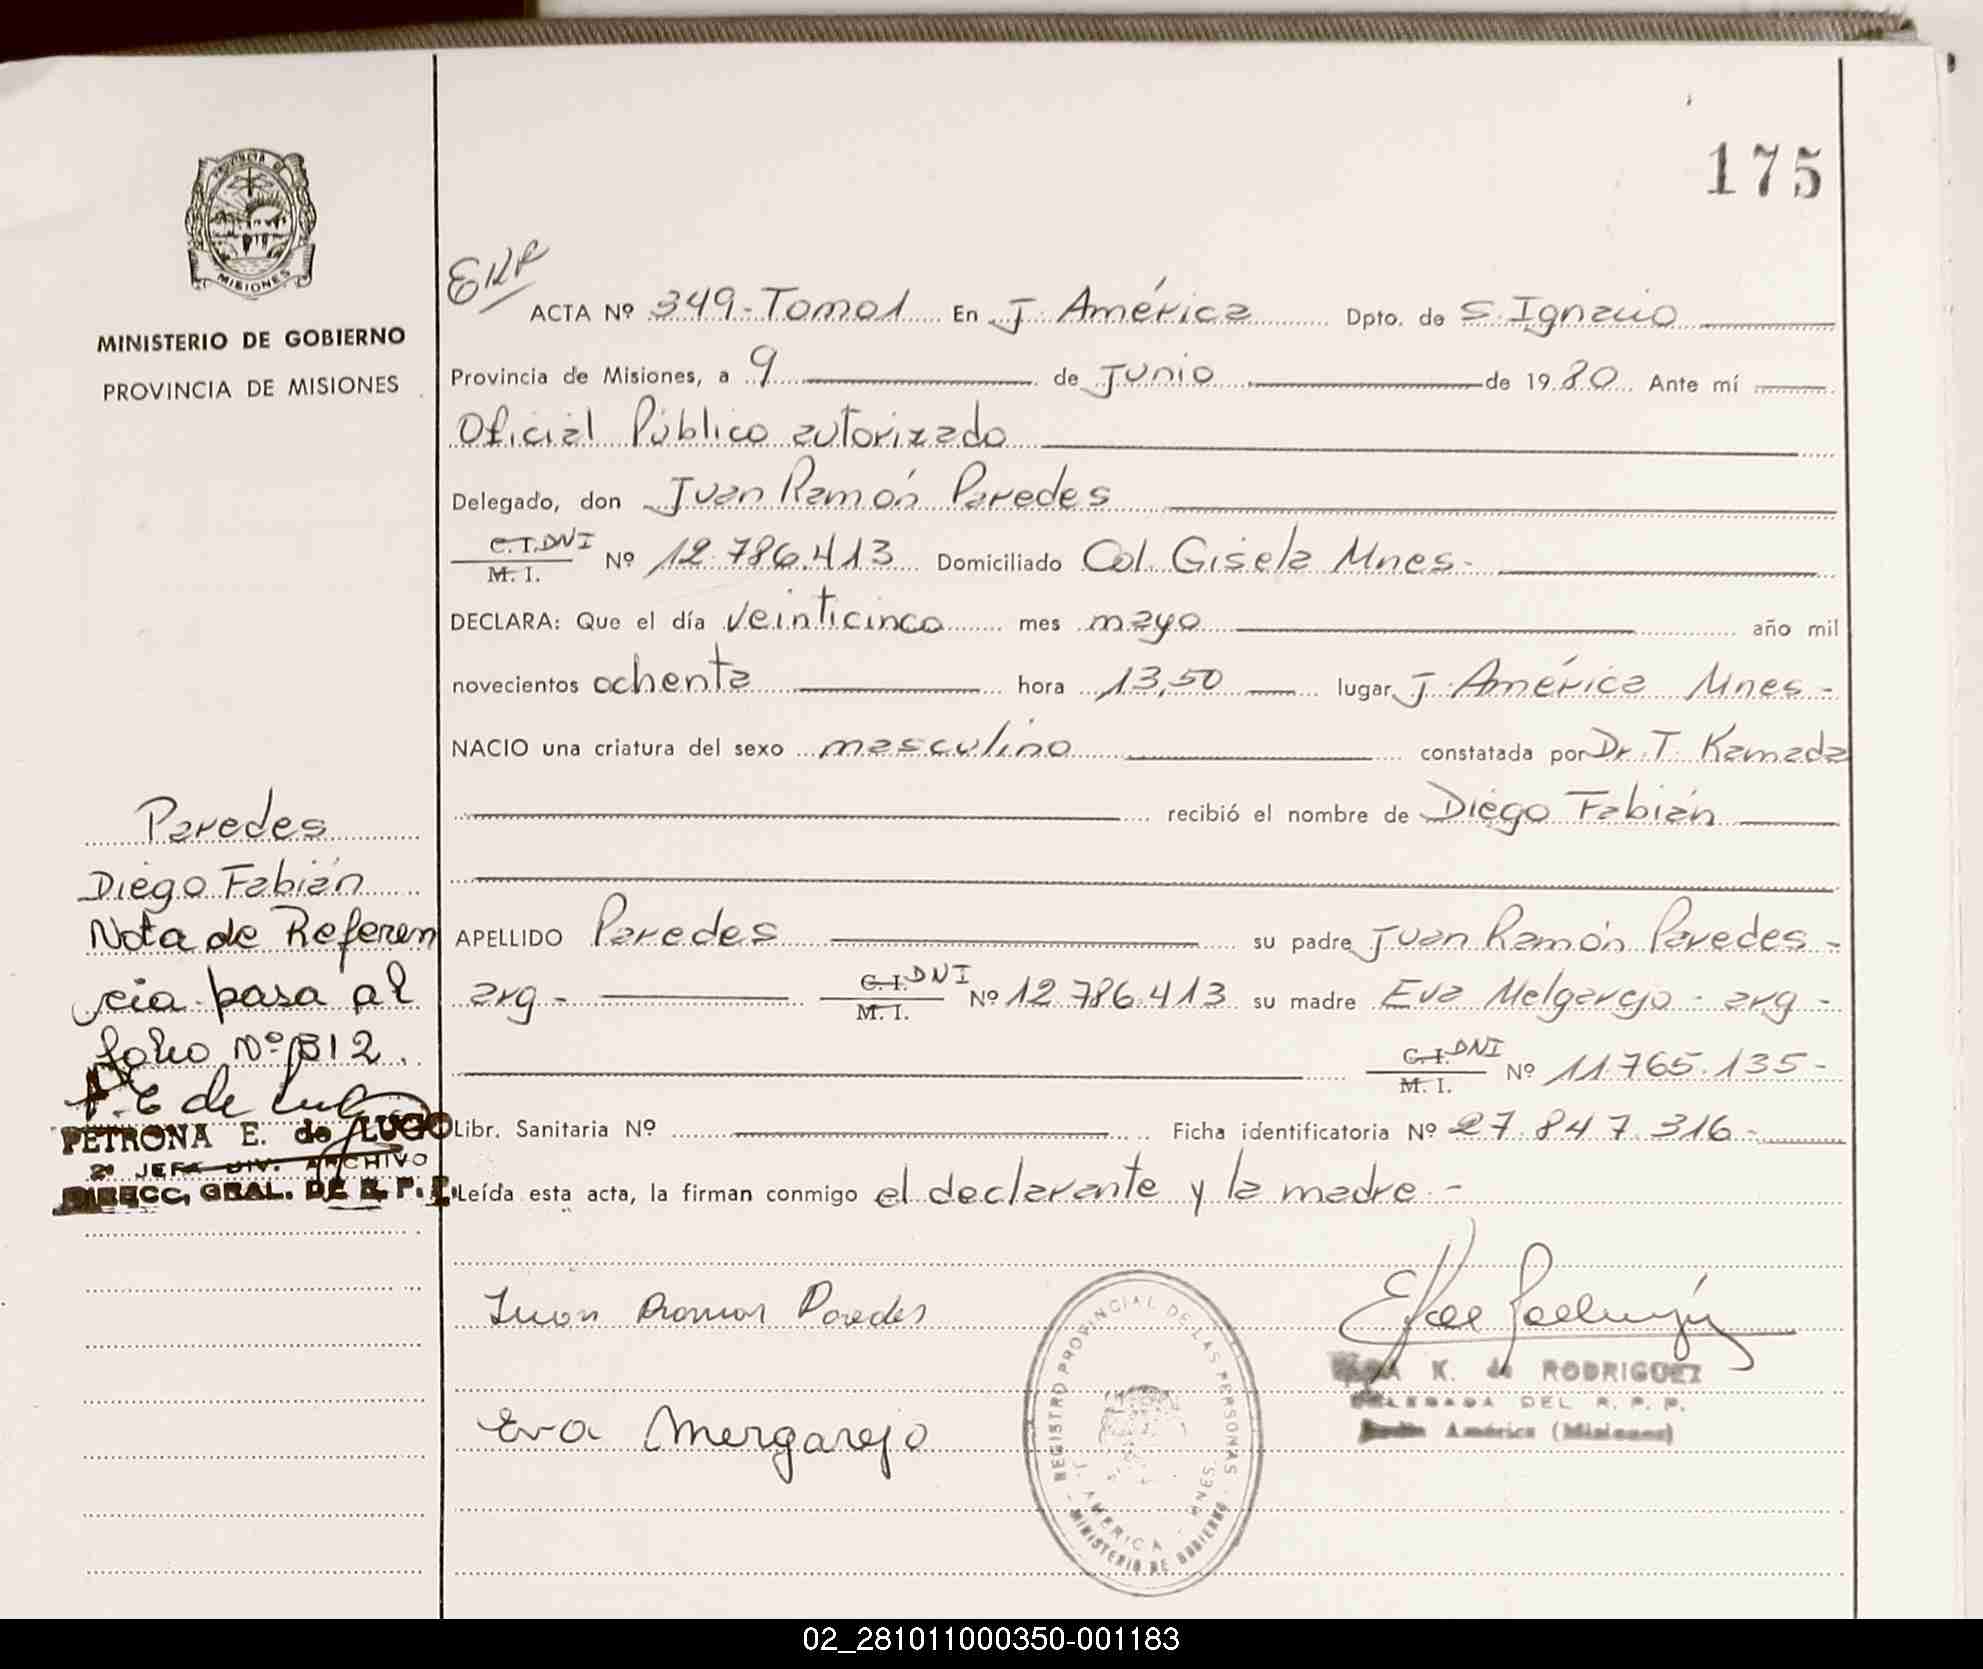 175
PROVINCIA DE
MISIONES
MINISTERIO DE GOBIERNO
PROVINCIA DE MISIONES
ACTA Nº 349-Tomo1 En J. América Dpto. de S. Ignacio
Provincia de Misiones, a 9 de Junio de 1980 Ante mí
Oficial Público autorizado
Delegado, don Juan Ramón Paredes
C.I. DNI
M. I. Nº 12.786.413 Domiciliado Col. Gisela Mnes-
DECLARA: Que el día veinticinco mes mayo año mil
novecientos ochenta hora 13,50 lugar J. América Mnes-
NACIO una criatura del sexo masculino constatada por Dr. T. Kamada
recibió el nombre de Diego Fabián
APELLIDO Paredes su padre Juan Ramón Paredes-
arg- C.I. DNI
M. I. Nº 12.786.413 su madre Eva Melgarejo - arg-
C.I. DNI
M. I. Nº 11.765.135-
Libr. Sanitaria Nº Ficha identificatoria Nº 27.847.316-
Leída esta acta, la firman conmigo el declarante y la madre-
Paredes
Diego Fabián
Nota de Referen
cia pasa al
folio Nº 312.
PETRONA E. de LUGO
2º JEFA DIV. ARCHIVO
DIRECC, GRAL. DE R. P. P.
Juan Ramon Paredes
Eva Mergarejo
REGISTRO PROVINCIAL DE LAS PERSONAS
J. AMERICA - MNES.
MINISTERIO DE GOBIERNO
K. de RODRIGUEZ
DELEGADA DEL R. P. P.
Jardín América (Misiones)
02_281011000350-001183